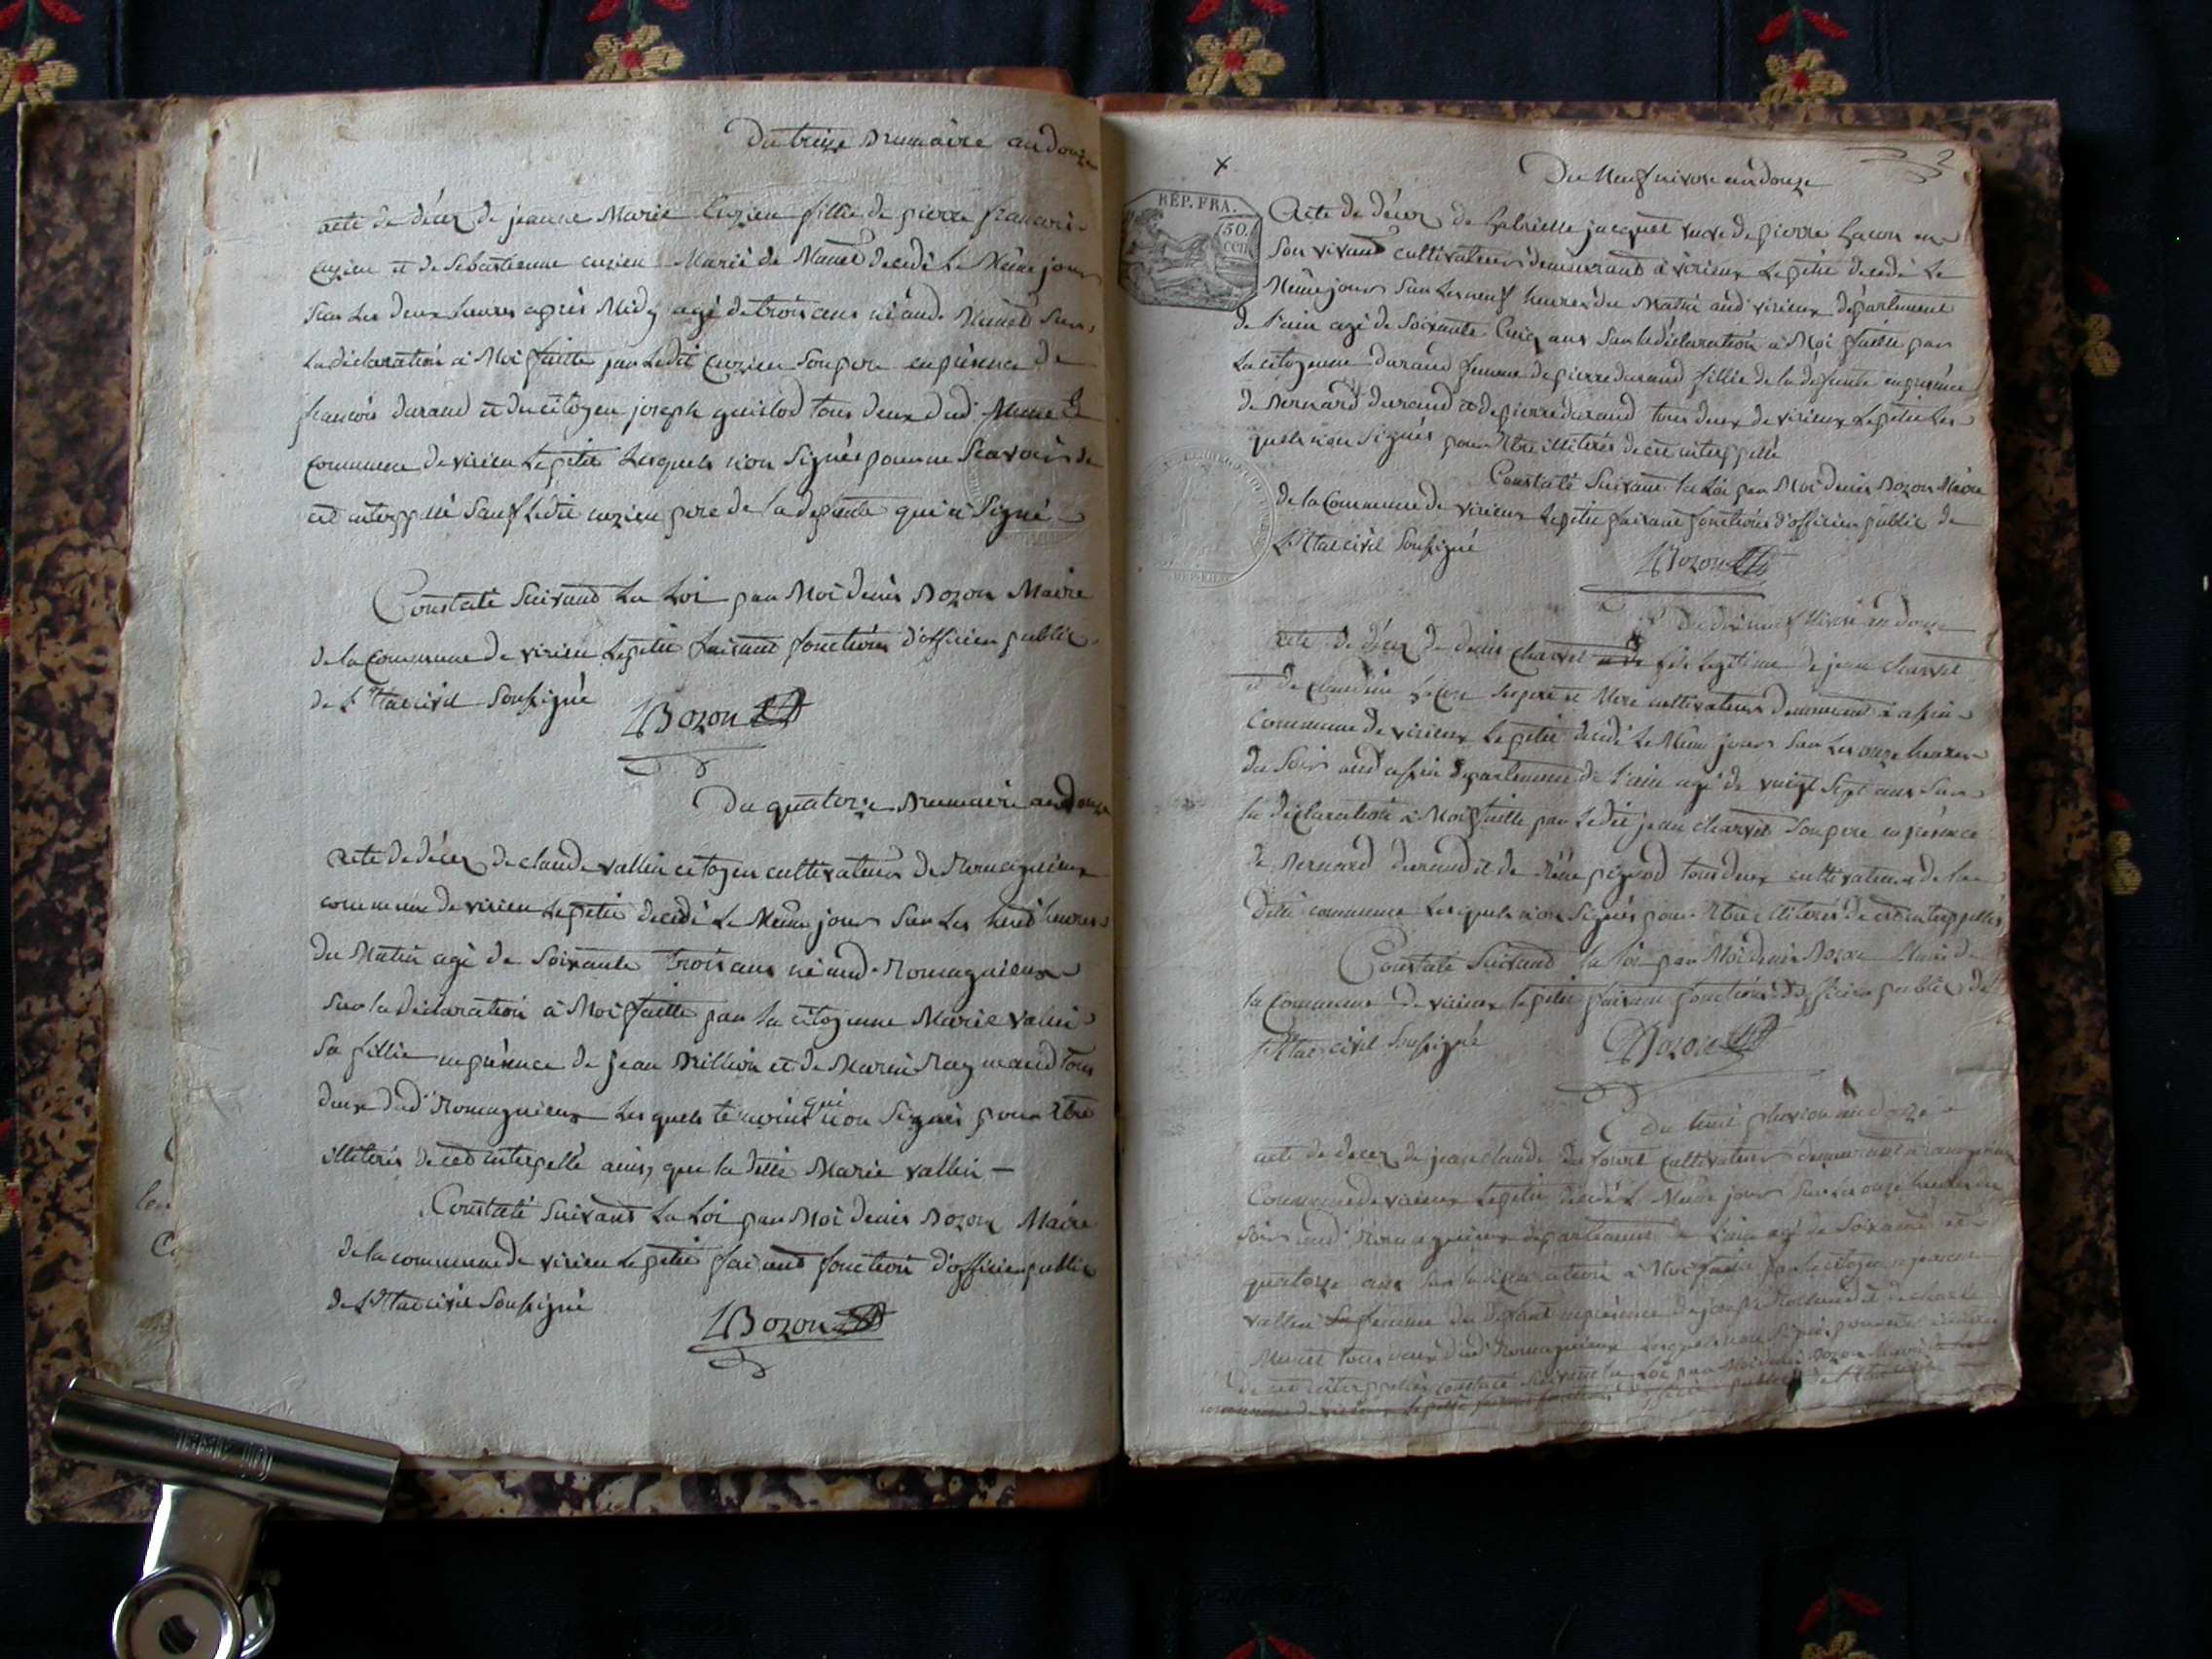 Du treize Brumaire an douze
acte de décez de jeanne Marie Cuzien fillie de pierre francois
Cuzien et de Sebastienne cuzien Marié de Munet decedé Le Même jour
Sur Les deux heures après Midy agé de trois ans né aud. Munet Sur
La déclaration à Moi faitte par Ledit Cuzien Son père en présence de
francois durand et du citoyen joseph guillod tous deux dud. Munet
commune de virieu Le petit Lesquels n'on Signés pour ne Scavoir de
cet interppellé Sauf Ledit cuzien père de la defunte qui a Signé
Constaté Suivant La Loi par Moi denis Bozon Maire
de la Commune de virieu Lepetit faisant fonctions d'officier public
de L'Etat civil Soussigné
Bozon
Du quatorze Brumaire an douze
acte de décez de claude vallin citoyen cultivateur de Romagnieux
commune de virieu Lepetit decedé Le Même jour Sur Les huit heures
du Matin agé de Soixante trois ans né aud. Romagnieux
Sur la déclaration à Moi faitte par la citoyenne Marie vallin
Sa fillie en présence de jean Billion et de Marin Raymand tous
deux dud. Romagnieux Lesquels témoins qui n'on Signés pour Etre
illiterés de cet interpellé ainsy que la ditte Marie vallin
Constaté Suivant La Loi par Moi denis Bozon Maire
de la commune de virieu Lepetit faisant fonction d'officier public
de L'Etat civil Soussigné
Bozon
2
Du Neuf nivose an douze
RÉP. FRA.
50
cen
Acte de décez de Gabrielle jacquet veuve de pierre en
Son vivant cultivateur demeurant à virieux Lepetit decedé Le
Même jour Sur Les neuf heures du Matin aud. virieux département
de l'ain agé de Soixante Cinq ans Sur la déclaration à Moi faitte par
La citoyenne durand femme de pierre durand fillie de la defunte en présence
de Bernard durand et de pierre durand tous deux de virieux Lepetit Les
quels n'on Signés pour Etre illiterés de cet interppellé
Constaté Suivant la Loi par Moi denis Bozon Maire
de la Commune de virieux Lepetit faisant fonctions d'officier public de
L'Etat civil Soussigné
Bozon
Du dix neuf Nivose an douze
acte de décez de denis charvet fils legitime de jean charvet
et de claudine Ses père et Mère cultivateurs demeurant à assin
Commune de virieux Lepetit decedé Le Même jour Sur Les onze heures
du Soir aud. assin département de l'ain agé de vingt Sept ans Sur
la déclaration à Moi faitte par Ledit jean charvet Son père en présence
de Bernard durand et de tous deux cultivateurs de la
ditte commune Lesquels n'on Signés pour Etre illiterés de cet interppellés
Constaté Suivant la loi par Moi denis Bozon Maire de
la Commune de virieux Lepetit faisant fonctions d'officier public de
l'Etat civil Soussigné
Bozon
Du huit pluviose an douze
acte de decez de jean claude du four cultivateur demeurant à romagnieux
Commune de virieux Lepetit decedé Le Même jour Sur Les onze heures du
Soir aud. Romagnieux département de l'ain agé de Soixante et
quatorze ans Sur la déclaration à Moi faitte par la citoyenne jeanne
vallin femme du defunt en présence de joseph et de
Munet tous deux dud. Romagnieux Lesquels n'on Signés pour etre
de cet interppellés Constaté Suivant la Loi par Moi denis Bozon Maire de la
commune de virieux Lepetit faisant fonctions d'officier public de l'Etat civil